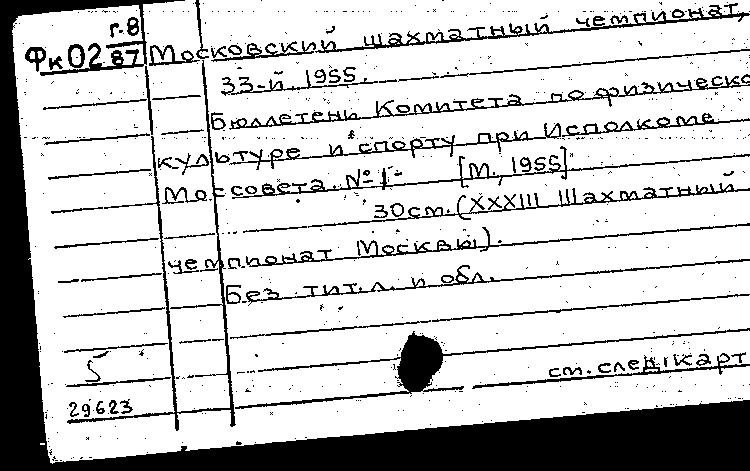 г.8
Фк02 87 Московский шахматный чемпионат,
33-й. 1955.
Бюллетени Комитета по физическо
культуре и спорту при Исполкоме
Моссовета. № 1- [М., 1955].
30см. (XXXIII Шахматный
чемпионат Москвы).
Без тит.л. и обл.
5
см. след.карт
29623